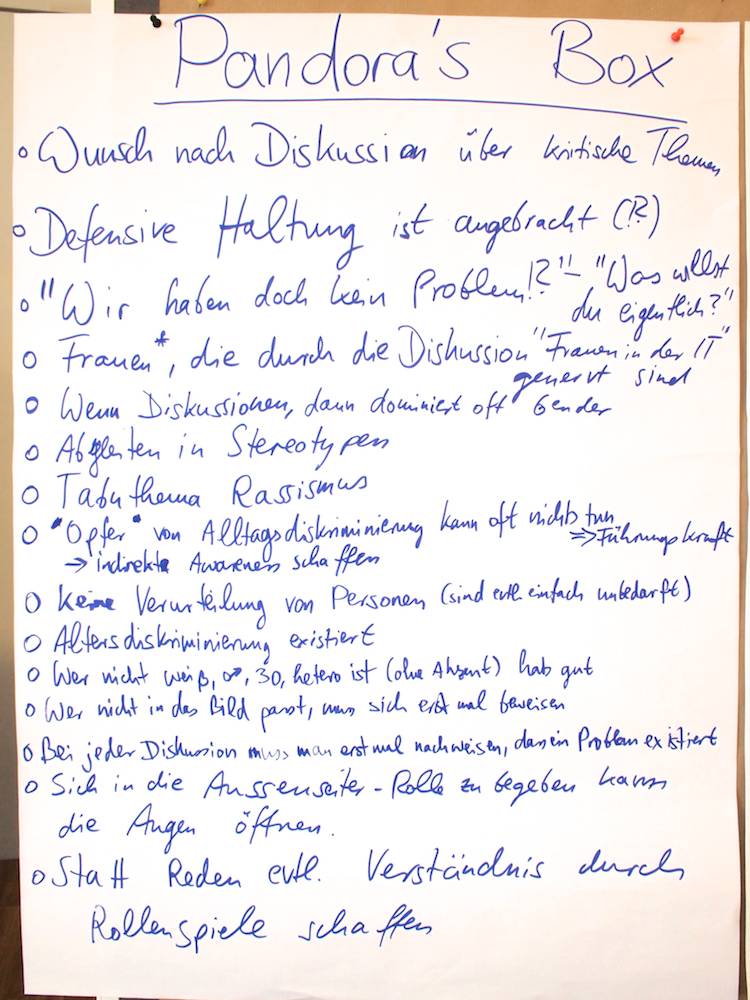 Pandora's Box
o Wunsch nach Diskussion über kritische Themen
o Defensive Haltung ist angebracht (?)
o "Wir haben doch kein Problem!?" – "Was willst
du eigentlich?"
o Frauen*, die durch die Diskussion "Frauen in der IT"
genervt sind
o Wenn Diskussionen, dann dominiert oft Gender
o Abgleiten in Stereotypen
o Tabuthema Rassismus
o "Opfer" von Alltagsdiskriminierung kann oft nichts tun
⇒ Führungskraft
→ indirekte Awareness schaffen
o Keine Verurteilung von Personen (sind evtl. einfach unbedarft)
o Altersdiskriminierung existiert
o Wer nicht weiß, ♂, 30, hetero ist (ohne Akzent) hab gut
o Wer nicht in das Bild passt, muss sich erst mal beweisen
o Bei jeder Diskussion muss man erst mal nachweisen, dass ein Problem existiert
o Sich in die Aussenseiter-Rolle zu begeben kann
die Augen öffnen.
o Statt Reden evtl. Verständnis durch
Rollenspiele schaffen